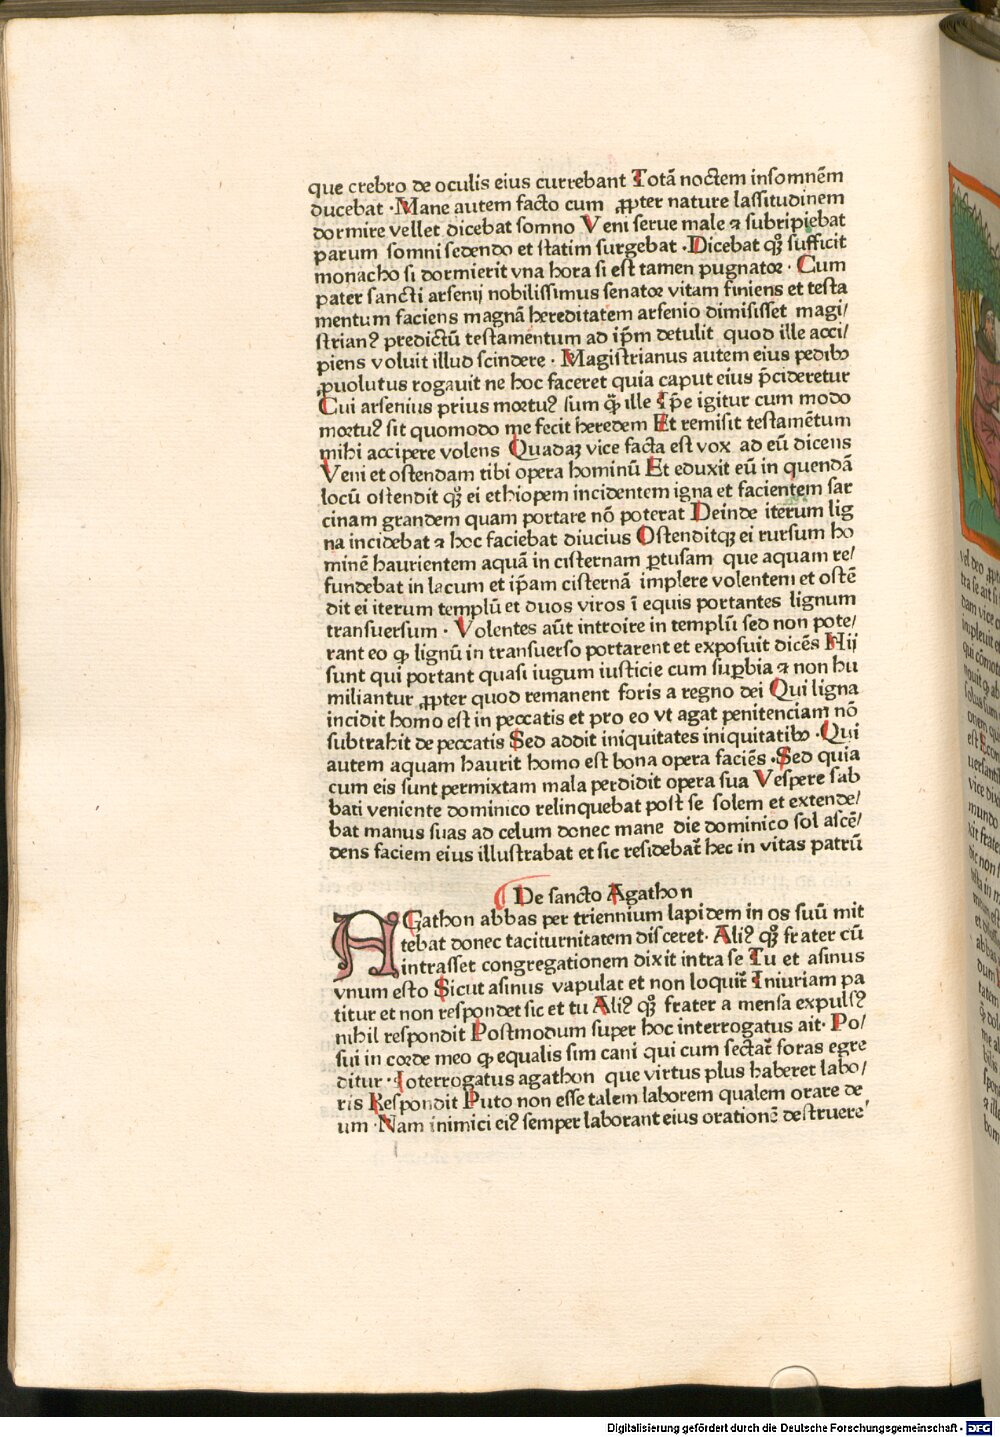 que crebro de oculis eius currebant Totā noctem insomnēm
ducebat · Mane autem facto cum ꝓpter nature lassitudinem
dormire vellet dicebat somno Veni serue male ⁊ subripiebat
parum somni sedendo et statim surgebat · Dicebat qꝫ sufficit
monacho si dormierit vna hora si est tamen pugnator · Cum
pater sancti arsenij nobilissimus senator vitam finiens et testa
mentum faciens magnā hereditatem arsenio dimisisset magi/
strianꝰ predictū testamentum ad ip̄m detulit quod ille acci/
piens voluit illud scindere · Magistrianus autem eius pedibꝰ
ꝓuolutus rogauit ne hoc faceret quia caput eius p̄cideretur
Cui arsenius prius mortuꝰ sum qͣꝫ ille Ip̄e igitur cum modo
mortuꝰ sit quomodo me fecit heredem Et remisit testamētum
mihi accipere volens Quadaꝫ vice facta est vox ad eū dicens
Veni et ostendam tibi opera hominū Et eduxit eū in quendā
locū ostendit qꝫ ei ethiopem incidentem igna et facientem sar
cinam grandem quam portare nō poterat Deinde iterum lig
na incidebat ⁊ hoc faciebat diucius Ostenditqꝫ ei rursum ho
minē haurientem aquā in cisternam ꝑtusam que aquam re/
fundebat in lacum et ip̄am cisternā implere volentem et ostē
dit ei iterum templū et duos viros ī equis portantes lignum
transuersum · Volentes aūt introire in templū sed non pote/
rant eo ꝙ lignū in transuerso portarent et exposuit dicēs Hij
sunt qui portant quasi iugum iusticie cum suꝑbia ⁊ non hu
miliantur ꝓpter quod remanent foris a regno dei Qui ligna
incidit homo est in peccatis et pro eo vt agat penitenciam nō
subtrahit de peccatis Sed addit iniquitates iniquitatibꝰ · Qui
autem aquam haurit homo est bona opera faciēs · Sed quia
cum eis sunt permixtam mala perdidit opera sua Vespere sab
bati veniente dominico relinquebat post se solem et extende/
bat manus suas ad celum donec mane die dominico sol ascē/
dens faciem eius illustrabat et sic residebat᷑ hec in vitas patrū
De sancto Agathon
AGathon abbas per triennium lapidem in os suū mit
tebat donec taciturnitatem disceret · Aliꝰ qꝫ frater cū
intrasset congregationem dixit intra se Tu et asinus
vnum esto Sicut asinus vapulat et non loquit᷑ Iniuriam pa
titur et non respondet sic et tu Aliꝰ qꝫ frater a mensa expulsꝰ
nihil respondit Postmodum super hoc interrogatus ait · Po/
sui in corde meo ꝙ equalis sim cani qui cum sectat᷑ foras egre
ditur · Ioterrogatus agathon que virtus plus haberet labo/
ris Respondit Puto non esse talem laborem qualem orare de
um · Nam inimici eiꝰ semper laborant eius orationē destruere
Digitalisierung gefördert durch die Deutsche Forschungsgemeinschaft - DFG